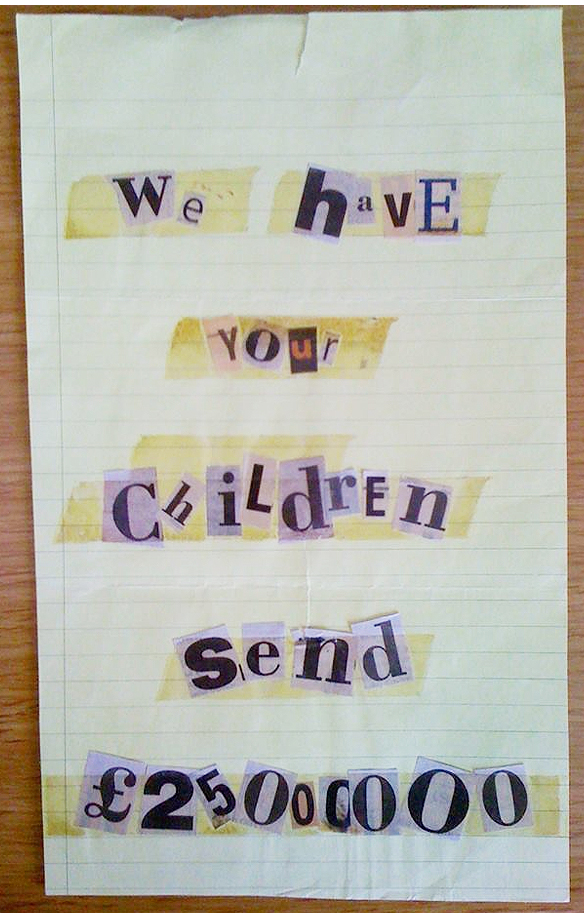 We havE
Your
ChiLdrEn
Send
£25000000